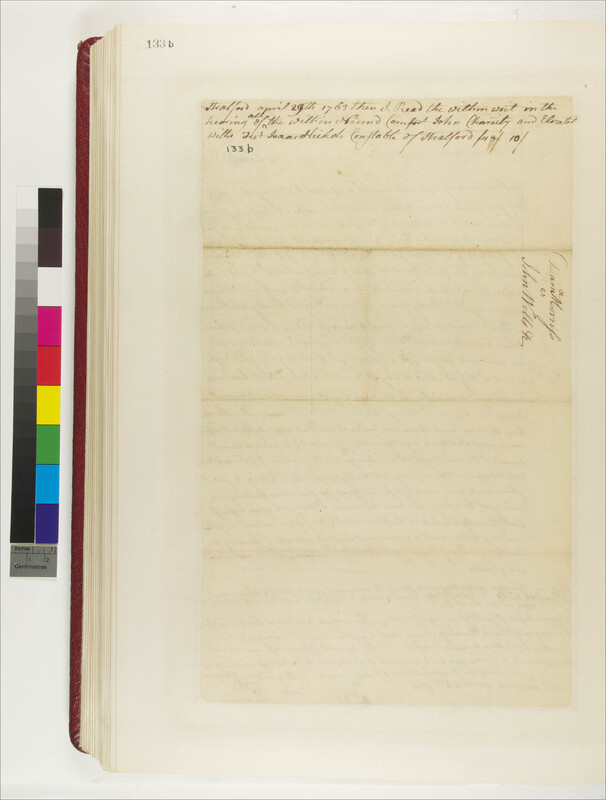 133 b
Stratford april 29th 1763 then I Read the within writ in the
hearing of all the within Named Comfort John Charity and
Wells Isaac Hichok Constable of Stratford fees 10/
133 b
John Wells
Inches
1
2
Centimetres